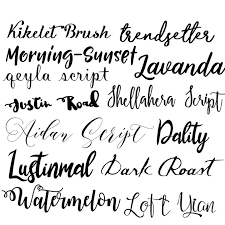 Kikelet Brush trendsetter
Morning-Sunset
qeyla script Lavanda
Justin Road Shellahera Script
Aidan Script Dality
Lustinmal Dark Roast
Watermelon Loft Yian